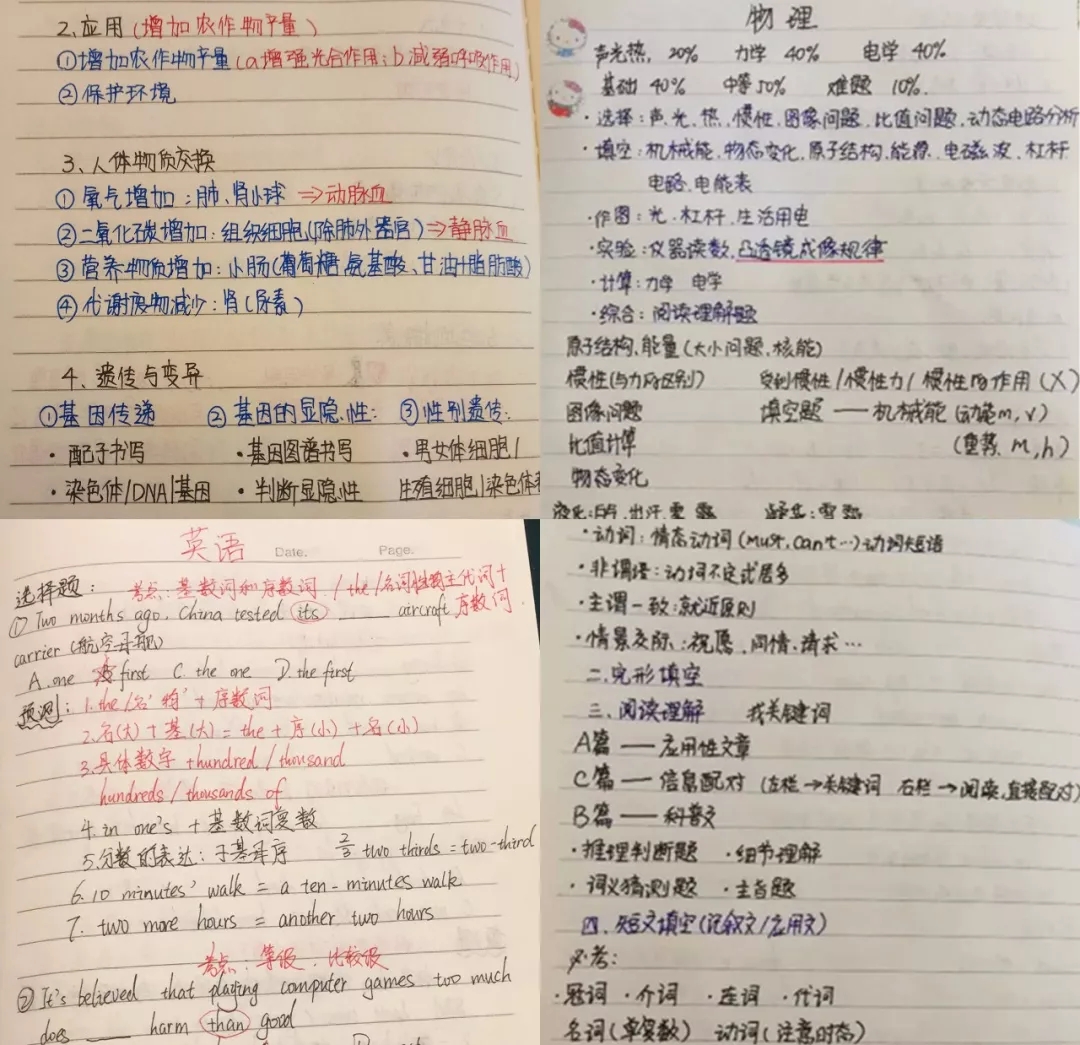 2.应用(增加农作物产量)
①增加农作物产量(a增强光合作用;b减弱呼吸作用)
②保护环境
3、人体物质交换
①氧气增加:肺、肾小球⇒动脉血
②二氧化碳增加:组织细胞(除肺外器官)⇒静脉血
③营养物质增加:小肠(葡萄糖、氨基酸、甘油+脂肪酸)
④代谢废物减少:肾(尿素)
4、遗传与变异
①基因传递 ②基因的显隐性: ③性别遗传:
·配子书写 ·基因图谱书写 ·男女体细胞/
·染色体/DNA/基因 ·判断显隐性 生殖细胞/染色体
物理
声光热,20% 力学40% 电学40%
基础40% 中等50% 难题10%.
·选择:声、光、热、惯性、图像问题、比值问题、动态电路分析
·填空:机械能、物态变化、原子结构、能源、电磁波、杠杆
电路、电能表
·作图:光、杠杆、生活用电
·实验:仪器读数,凸透镜成像规律
·计算:力学 电学
·综合:阅读理解题
原子结构、能量(大小问题、核能)
惯性(与力的区别) 受到惯性/惯性力/惯性的作用(X)
图像问题 填空题——机械能(动能m,v)
比值计算 (重势、m,h)
物态变化
英语 Date. Page.
选择题: 考点:基数词和序数词./the/名词性物主代词+序数词.
①Two months ago, China tested its ____ aircraft
carrier(航空母舰)
A.one first C. the one D.the first
预测:1.the/名's/物'+序数词
2.名(大)+基(大)=the+序(小)+名(小)
3.具体数字+hundred/thousand
hundreds/thousands of
4.in one's+基数词复数
5.分数的表达:子基母序 2/3 two thirds=two-third
6.10 minutes' walk = a ten-minutes walk
7. two more hours = another two hours
考点:等级.比较级
②It's believed that playing computer games too much
does ____ harm than good
·动词:情态动词(must,can't…)动词短语
·非谓语:动词不定式居多
·主谓一致:就近原则
·情景交际:祝愿、同情、请求…
二.完形填空
三、阅读理解 找关键词
A篇——应用性文章
C篇——信息配对(左栏→关键词 右栏→阅读,直接配对)
B篇——科普文
·推理判断题 ·细节理解
·词义猜测题 ·主旨题
四、短文填空(记叙文/应用文)
必考:
·冠词 ·介词 ·连词 ·代词
名词(单复数) 动词(注意时态)